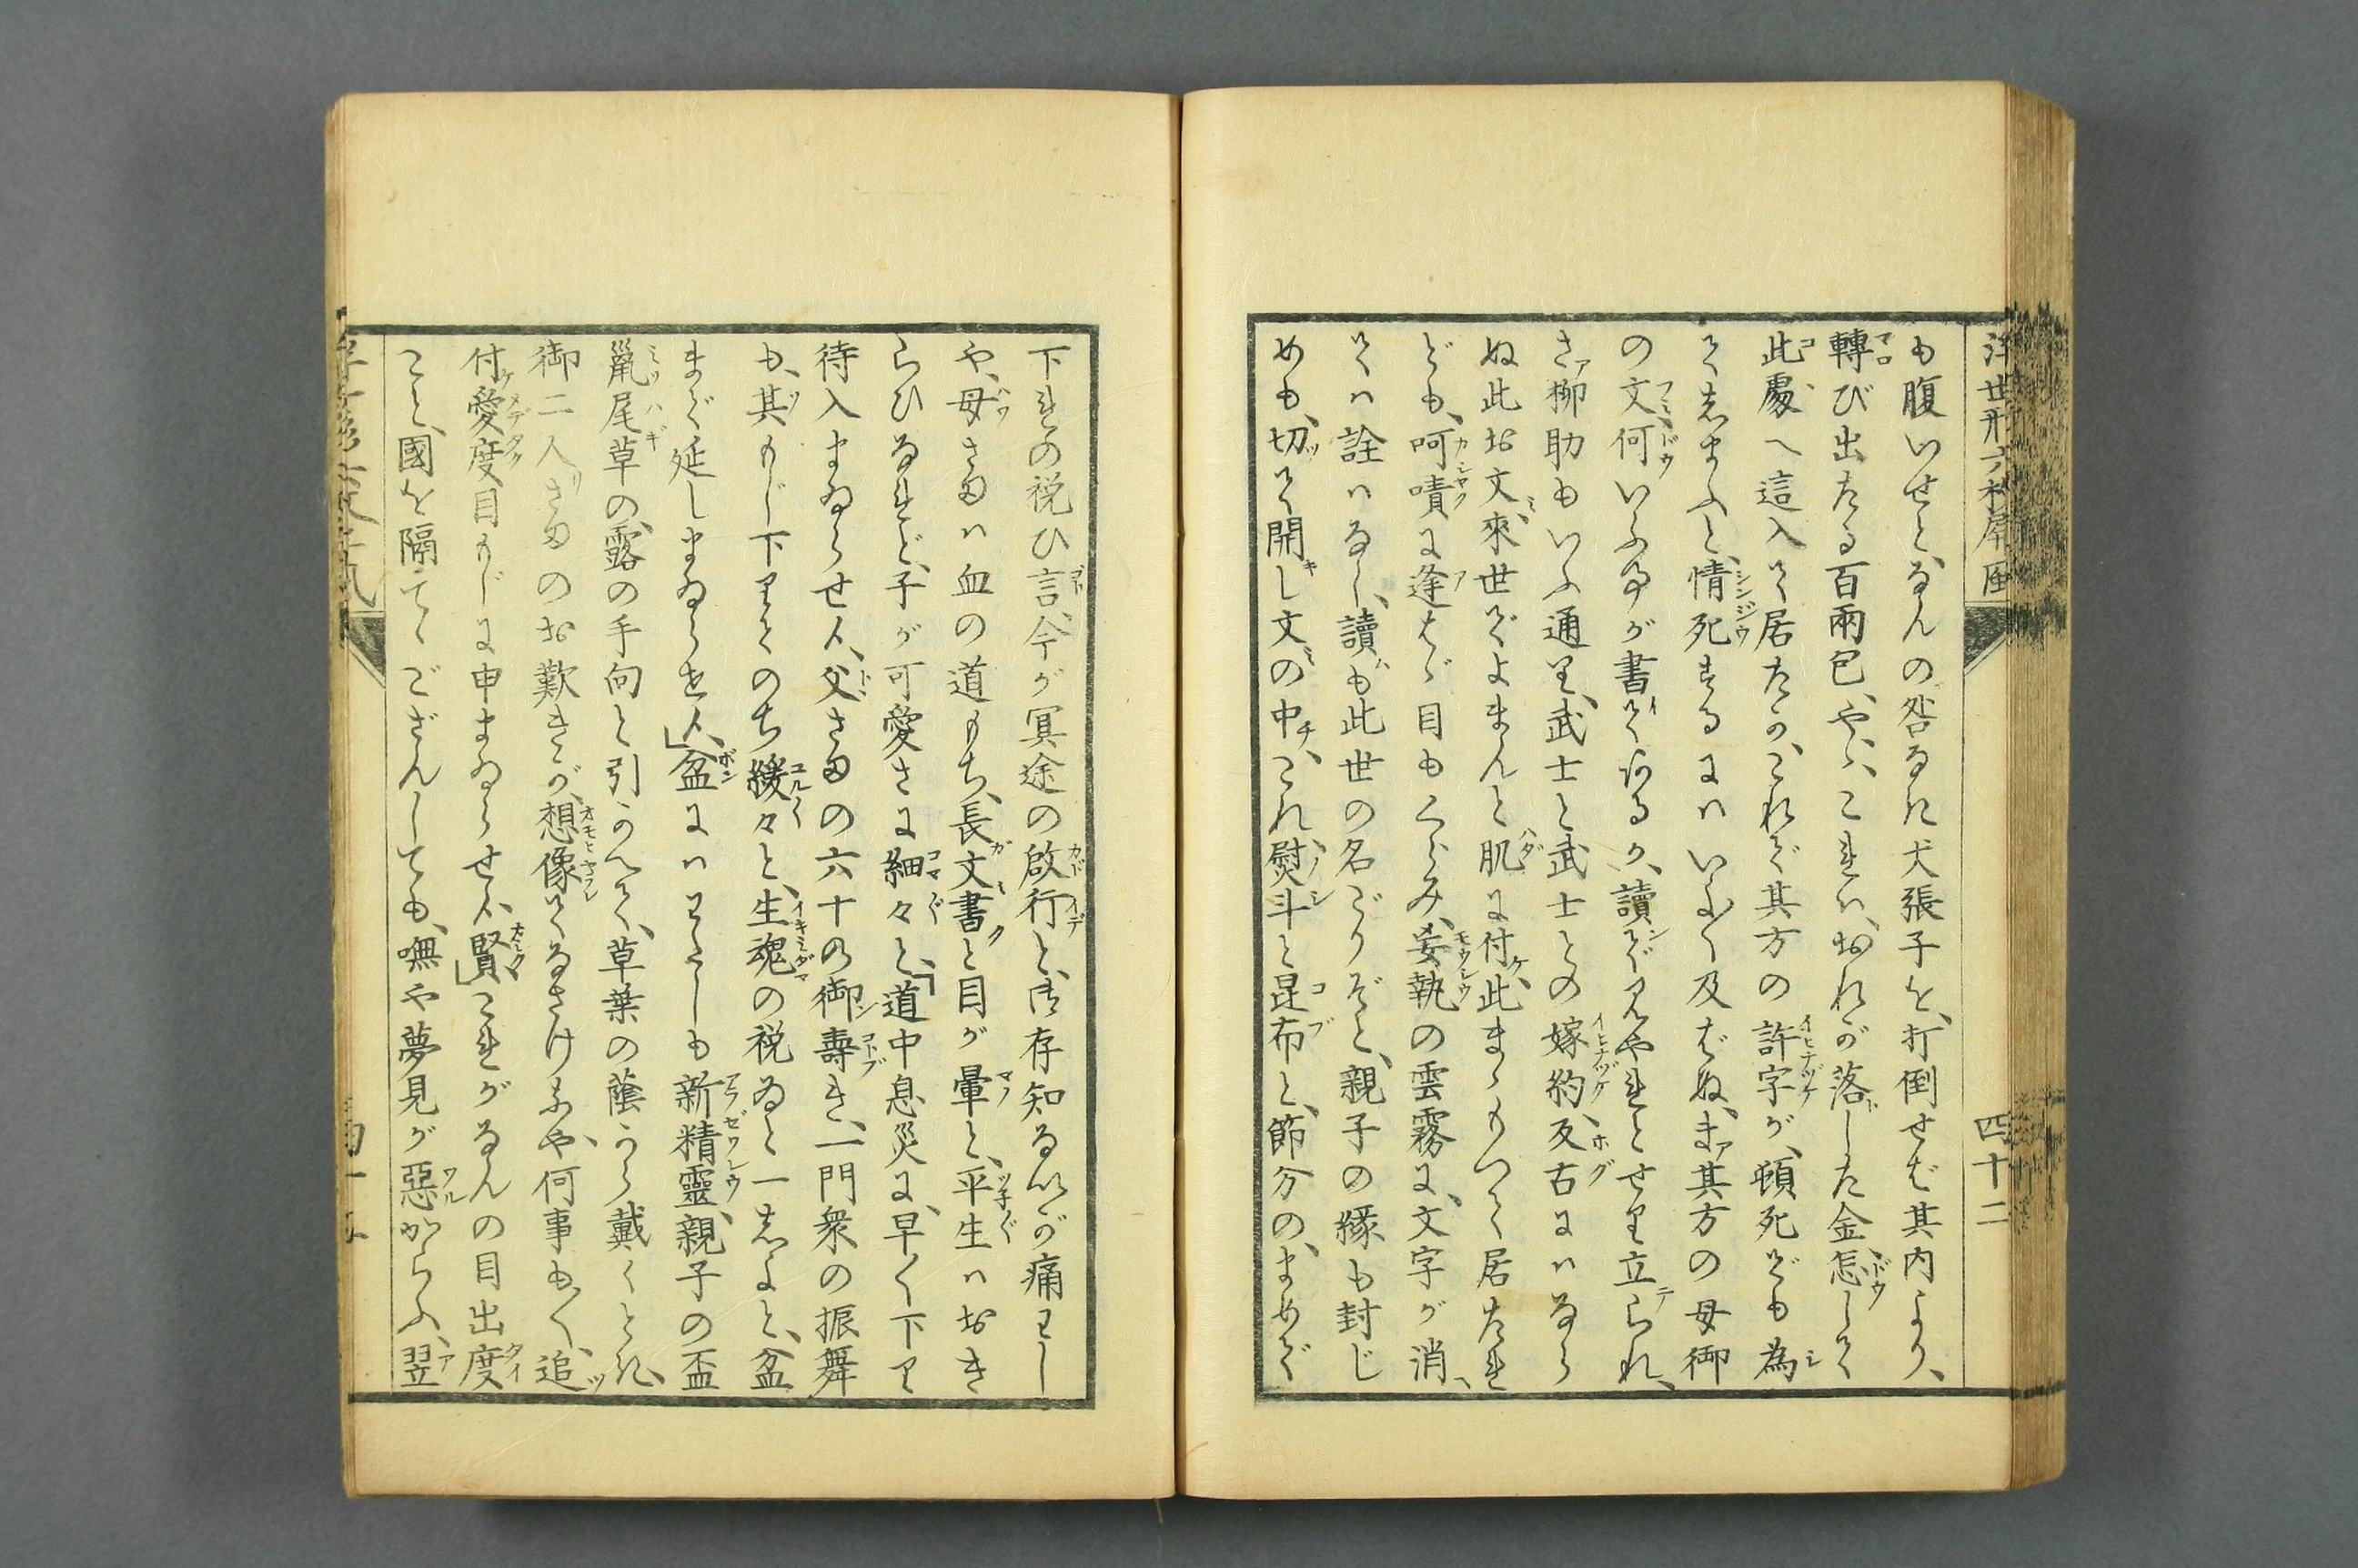 浮世形六枚屏風
四十二
も腹いせと、なんの咎なき犬張子を、打倒せば其内より、
轉び出たる百兩包、やゝ、これハ、おれが落した金、怎して
此處へ這入て居たか、これで其方の許字が、頓死でも為
てしまふと、情死するにハいよ〳〵及ばぬ、まア其方の母御
の文、何いふ事が書てある か、讀でみやれとせり立られ、
さア柳助もいふ通り、武士と武士との嫁約、反古にハなら
ぬ此お文、來世でよまんと肌に付、此まゝもつて居たれ
ども、呵嘖に逢はゞ目もくらみ、妄執の雲霧に、文字が消、
てハ詮ハなし、讀も此世の名ごりぞと、親子の縁も封じ
めも、切て開し文の中、これ、熨斗と昆布と、節分の、まめで
下れの祝ひ言、今が冥途の啟行と、御存知ないが痛はし
や、母さまハ血の道もち、長文書と目が暈と、平生ハおき
らひなれど、子が可愛さに細々と、「道中息災に、早く下り
待入まゐらせ候、父さまの六十の御壽き、一門衆の振舞
も、其もじ下りてのち緩々と、生魂の祝ゐと一しよと、盆
まで延しまゐらせ候」、盆にハわたしも新精靈、親子の盃
鼠尾草の、露の手向と引かへて、草葉の蔭から戴くとき、
御二人さまのお歎きが、想像てなさけなや、何事も〳〵、追
付愛度目もじに申まゐらせ候、賢」これがなんの目出度
こと、國を隔てゝござんしても、嘸や夢見が惡からふ、翌